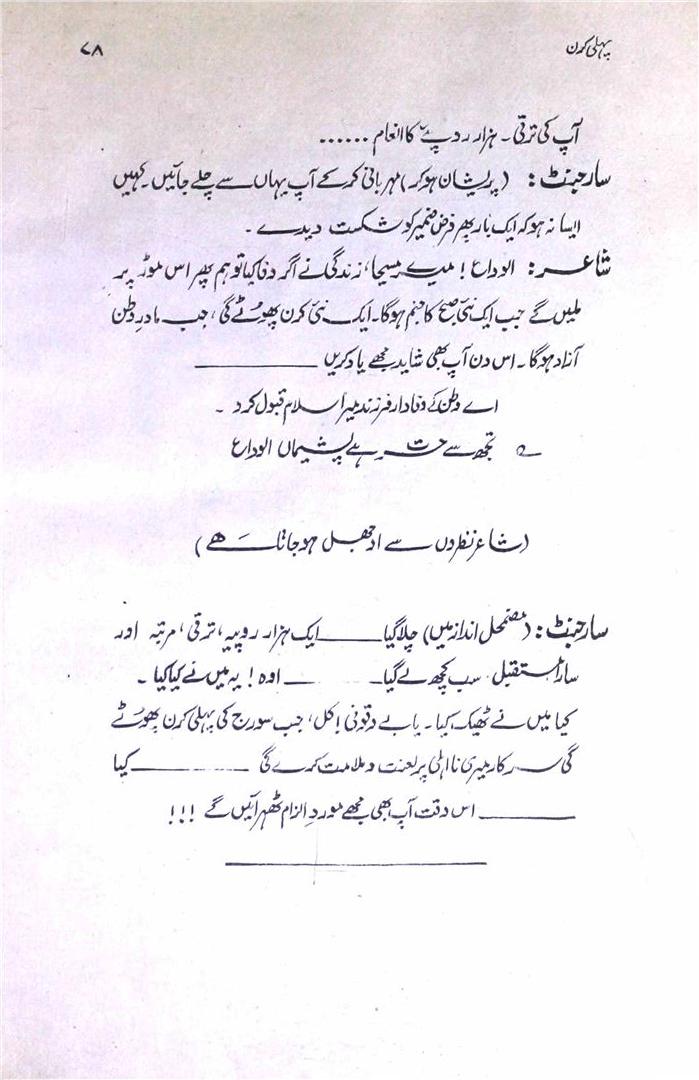 پہلی کرن
۷۸
آپ کی ترقی۔ ہزار روپے کا انعام ......
سارجنٹ: (پریشان ہوکر) مہربانی کرکے آپ یہاں سے چلے جائیں۔ کہیں
ایسا نہ ہو کہ ایک بار پھر فرض ضمیر کو شکست دیدے۔
شاعر: الوداع! میرے مسیحا، زندگی نے اگر وفا کیا تو ہم پھر اس موڑ پر
ملیں گے جب ایک نئی صبح کا جنم ہوگا۔ ایک نئی کرن پھوٹے گی، جب مادرِ وطن
آزاد ہوگا۔ اس دن آپ بھی شاید مجھے یاد کریں ــــــــــــ
اے وطن کے وفادار فرزند میرا سلام قبول کرو۔
؎ تجھ سے حسرت ہے پشیماں الوداع
(شاعر نظروں سے اوجھل ہو جاتا ہے)
سارجنٹ: (مضمحل انداز میں) چلا گیا ــــــــ ایک ہزار روپیہ، ترقی، مرتبہ اور
سارا مستقبل سب کچھ لے گیا ــــــــ اوہ! یہ میں نے کیا کیا۔
کیا میں نے ٹھیک کیا۔ یا بے وقوفی! کل، جب سورج کی پہلی کرن پھوٹے
گی سرکار میری نااہلی پر لعنت و ملامت کرے گی ــــــــ کیا
ــــــــ اس وقت آپ بھی مجھے موردِ الزام ٹھہرائیں گے !!!